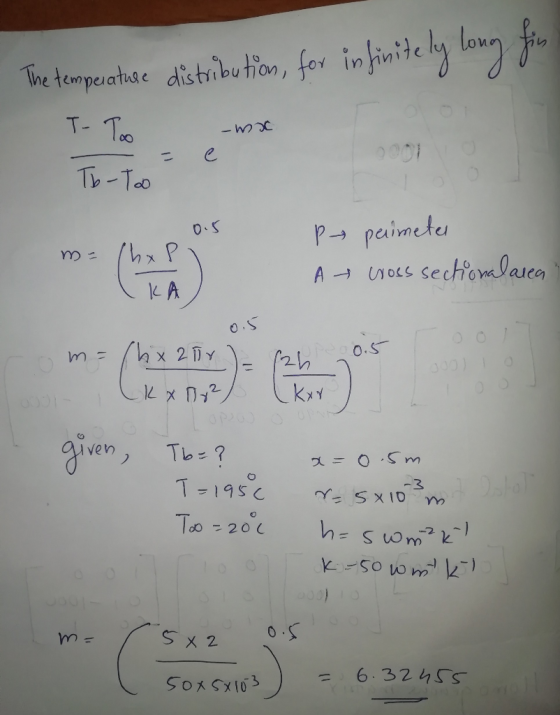 The temperature distribution, for infinitely long fin
T - T∞ / Tb - T∞ = e^-mx
m = (h x P / k A)^0.5 P → perimeter
A → cross sectional area
m = (h x 2πr / k x πr²)^0.5 = (2h / k x r)^0.5
given, Tb = ? x = 0.5m
T = 195°C r = 5 x 10^-3 m
T∞ = 20°C h = 5 wm^-2 k^-1
k - 50 wm^-1 k^-1
m = (5 x 2 / 50 x 5 x 10^-3)^0.5 = 6.32455